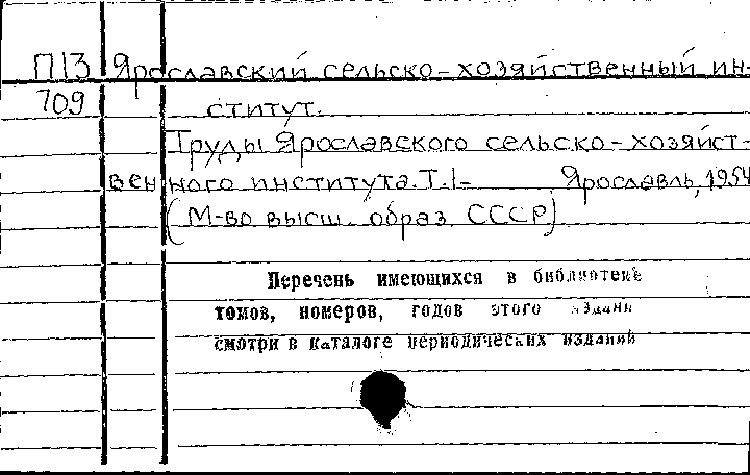 П13 Ярославский сельско-хозяйственный ин-
709 ститут.
Труды Ярославского сельско-хозяйст-
венного института. Т.1- Ярославль, 1954
(М-во высш. образ. СССР)
Перечень имеющихся в библиотеке
томов, номеров, годов этого издания
смотри в каталоге периодических изданий